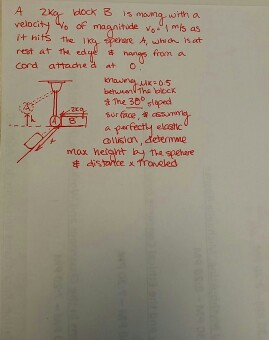 A 2kg block B is moving with a
velocity v₀ of magnitude v₀ = 1 m/s as
it hits the 1kg sphere A, which is at
rest at the edge & hangs from a
cord attached at O
knowing μk=0.5
between the block
& the 30° sloped
surface, & assuming
a perfectly elastic
collision, determine
max height by the sphere
& distance x traveled
2kg
A
h
A
B
x